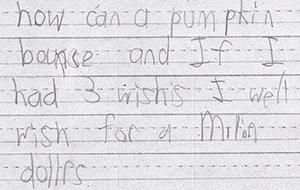 how can a pumpkin
bounse and If I
had 3 wishis I well
wish for a Milion
dollrs